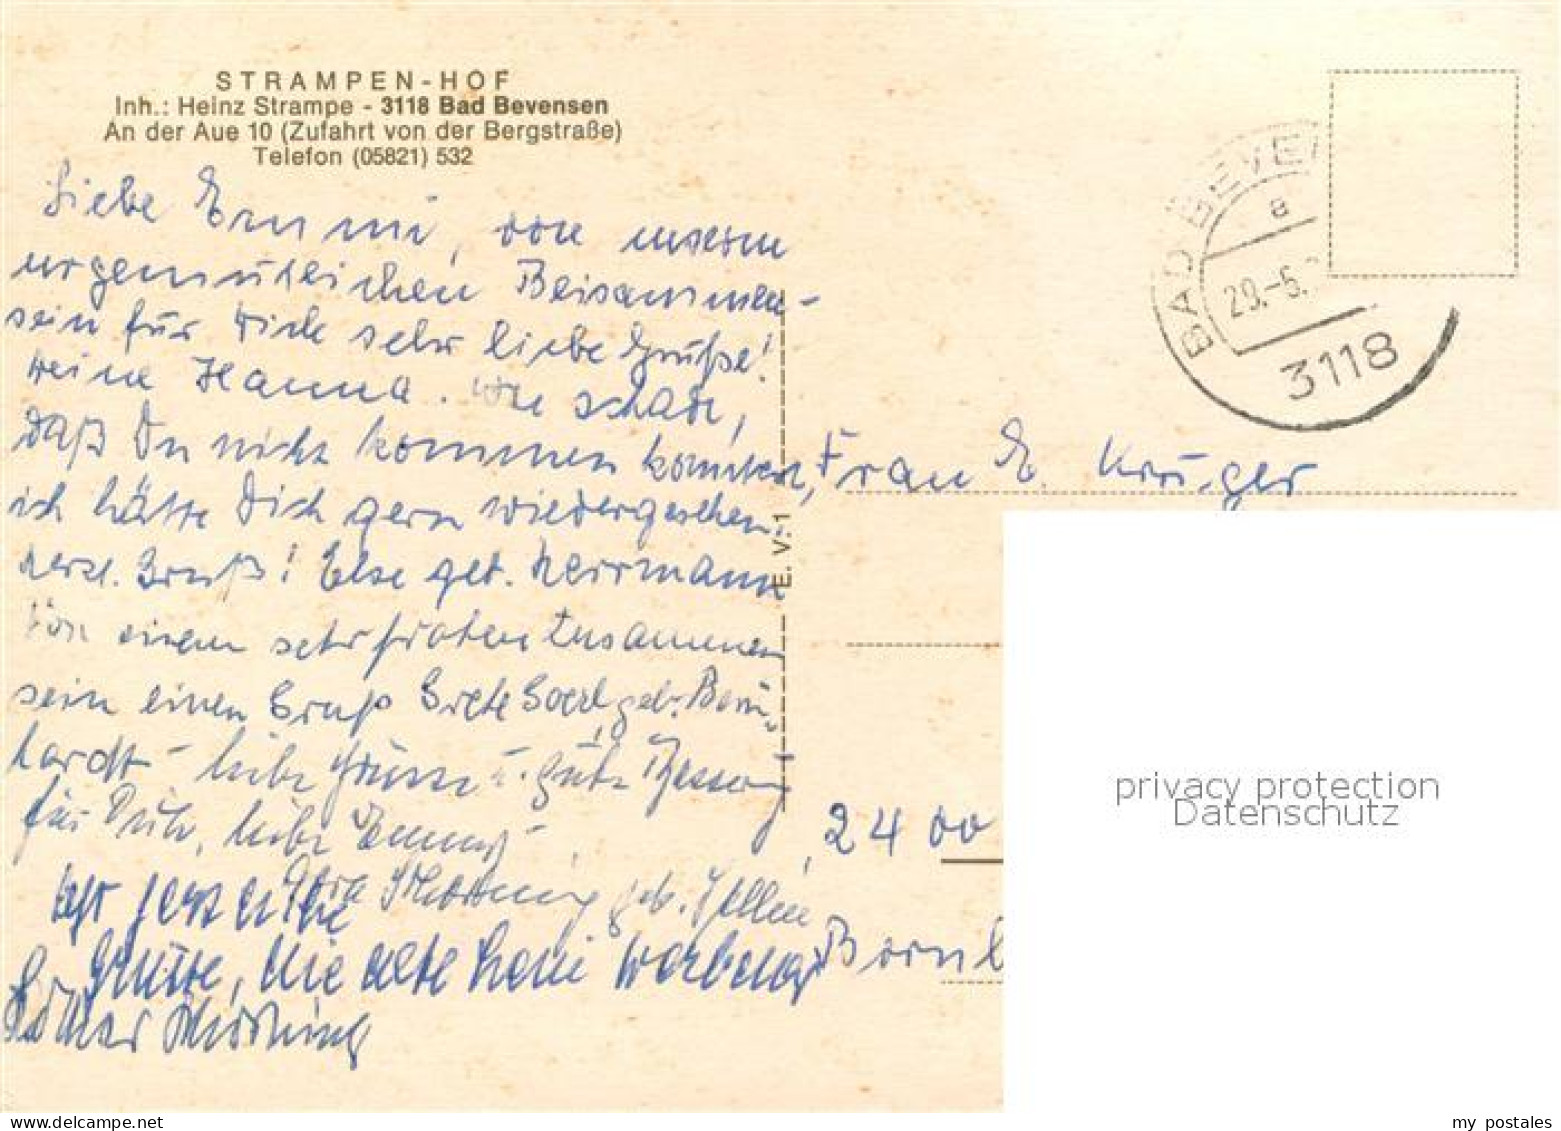 STRAMPEN-HOF
Inh.: Heinz Strampe - 3118 Bad Bevensen
An der Aue 10 (Zufahrt von der Bergstraße)
Telefon (05821) 532
Liebe Emmi, von unserm
urgemütlichen Beisammen-
sein für Dich sehr liebe Grüße!
Deine Hanna. Wie schade,
daß Du nicht kommen konntest,
ich hätte Dich gern wiedergesehen.
Herzl. Gruß! Else geb. Herrmann
Von einem sehr frohen Zusammen
sein einen Gruß Grete geb. Bern-
hardt – liebe Grüsse u. gute Besserung
für Dich, liebe Emmy –
geb.
Grüße, die alte
BAD BEVEN
a
29.-6.
3118
E. V. 1
Frau E. Krüger
2400
privacy protection
Datenschutz
my postales